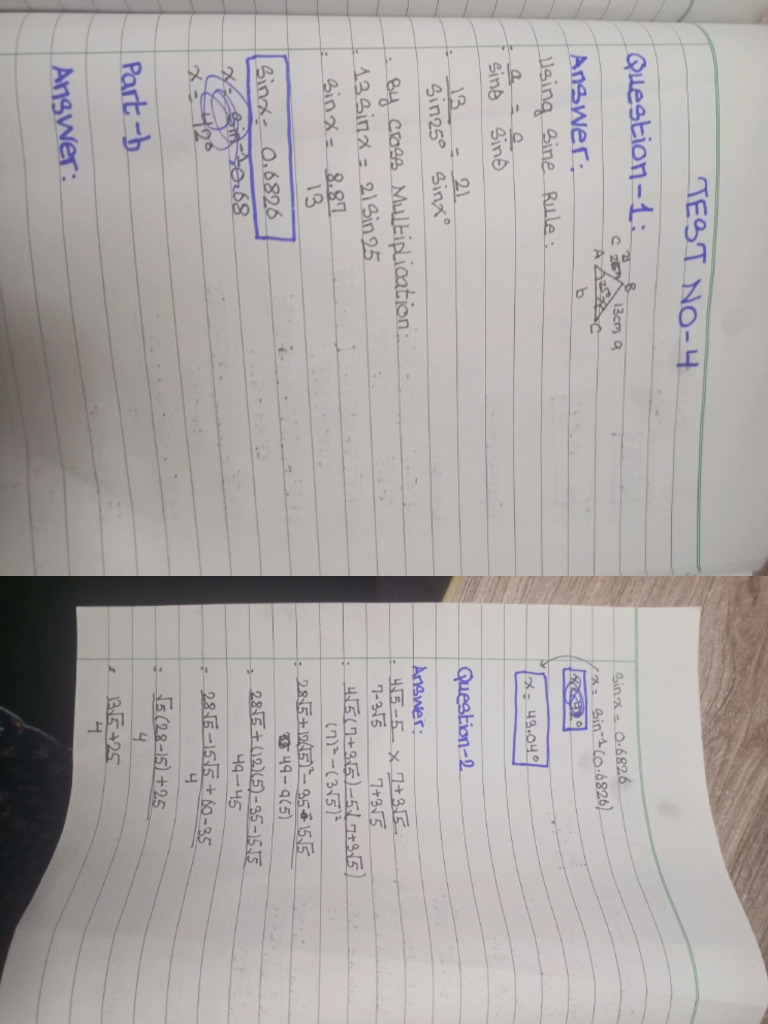 TEST NO-4
Question-1:
B
13cm a
25°
x°
A
C
b
Answer:
Using Sine Rule:
∴ a/sinθ = c/sinθ
∴ 13/sin25° = 21/sinx°
∴ By Cross Multiplication:
∴ 13sinx = 21sin25
∴ sinx = 8.87/13
sinx = 0.6826
x = sin⁻¹0.68
x = 42°
Part-b
Answer:
sinx = 0.6826
x = sin⁻¹(0.6826)
x = 43.04°
Question-2
Answer:
∴ 4√5-5/7-3√5 × 7+3√5/7+3√5
∴ 4√5(7+3√5)-5(7+3√5)/(7)²-(3√5)²
∴ 28√5+12(√5)²-35-15√5/49-9(5)
∴ 28√5+(12)(5)-35-15√5/49-45
∴ 28√5-15√5+60-35/4
∴ √5(28-15)+25/4
∴ 13√5+25/4